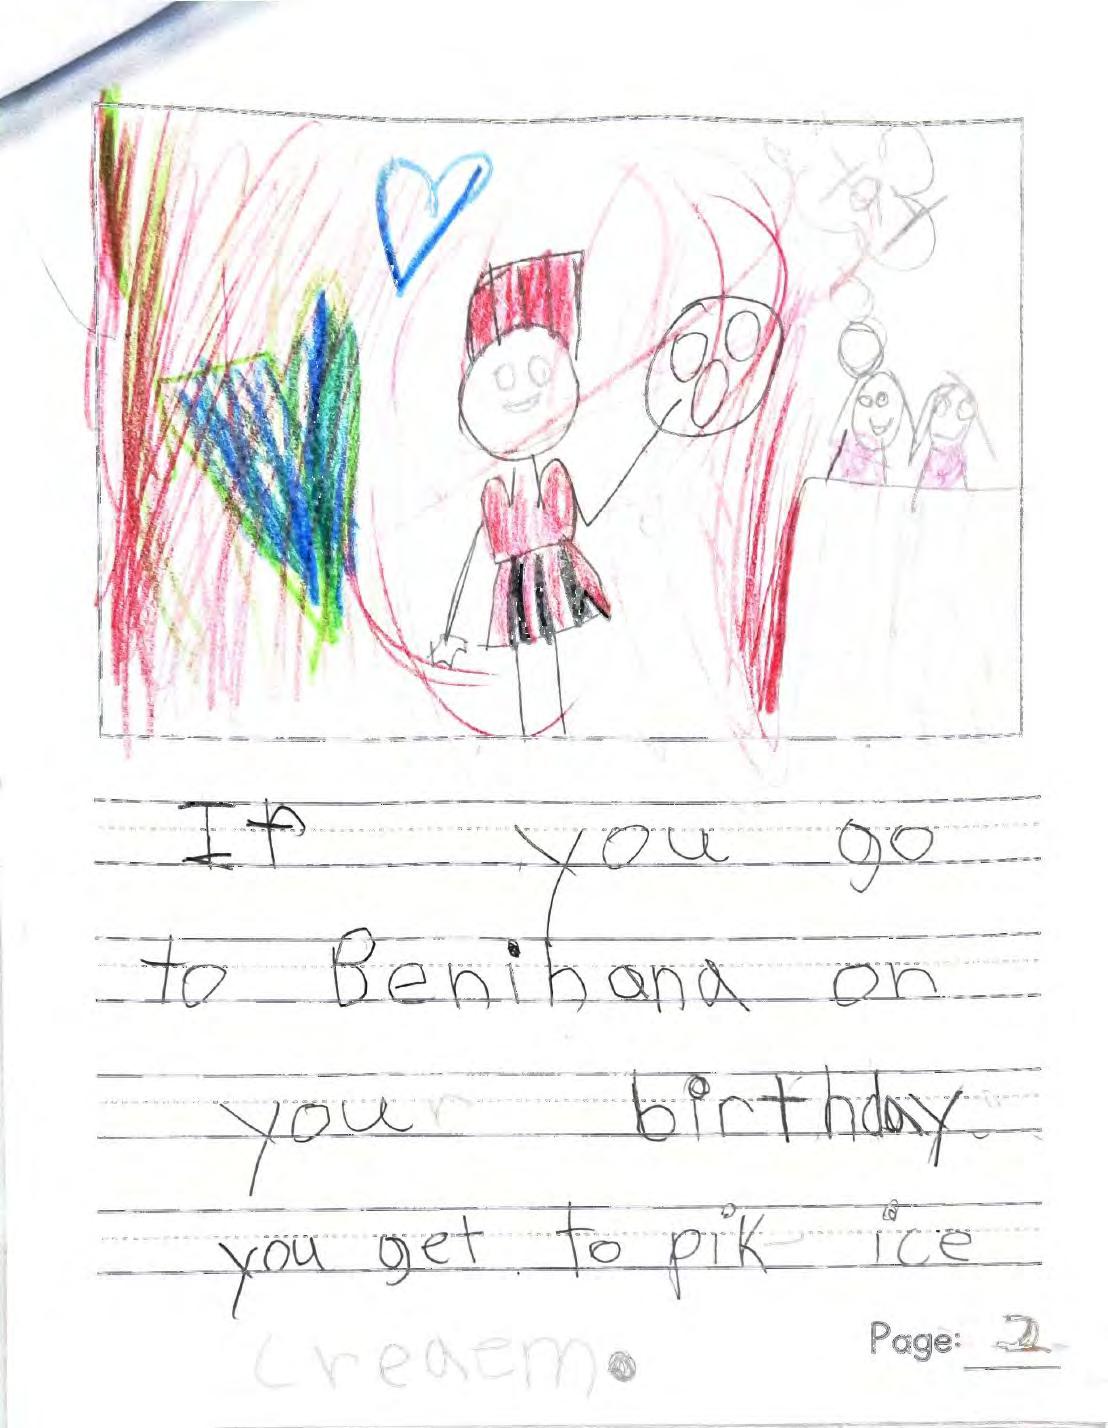 If you go
to Benihana on
your birthday.
you get to pik ice
creaem.
Page: 2